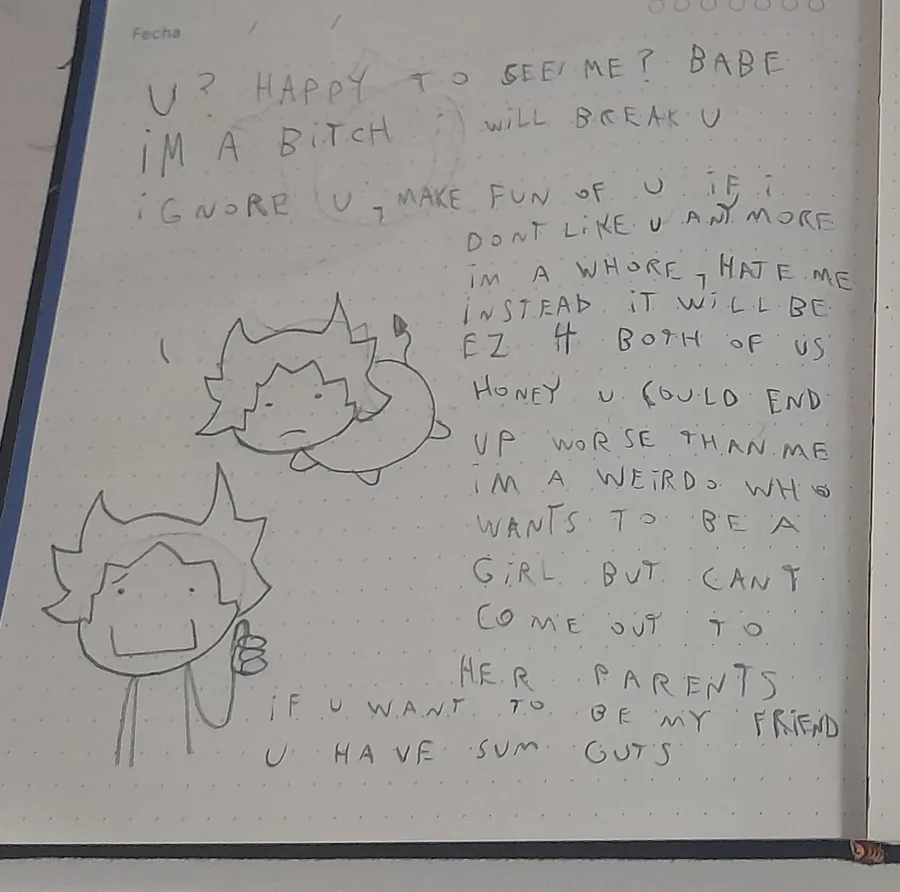 Fecha / /
U? HAPPY TO SEE ME? BABE
iM A BiTCH i WiLL BREAK U
iGNORE U, MAKE FUN OF U iF i
DONT LiKE U ANYMORE
iM A WHORE, HATE ME
iNSTEAD iT WiLL BE
EZ 4 BOTH OF US
HONEY U COULD END
UP WORSE THAN ME
iM A WEiRDO WHO
WANTS TO BE A
GiRL BUT CANT
COME OUT TO
HER PARENTS
iF U WANT TO BE MY FRiEND
U HAVE SUM GUTS